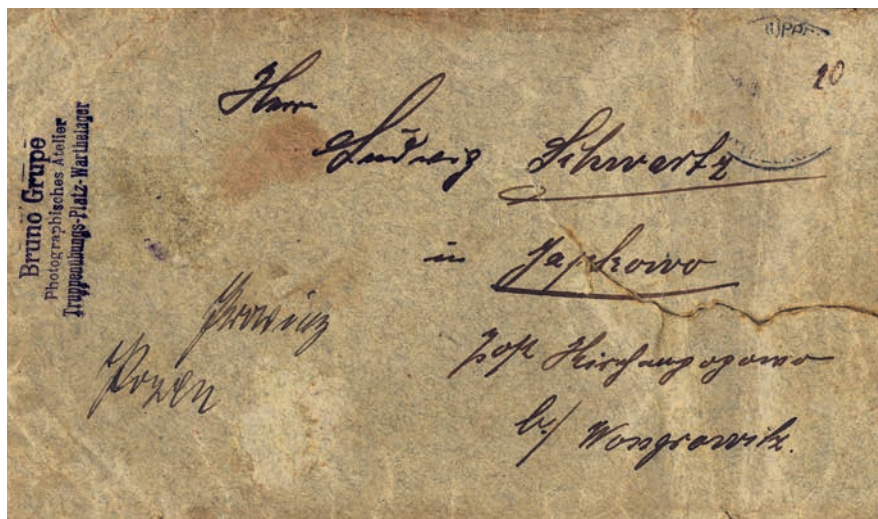 Bruno Grupe
Photographisches Atelier
Truppenübungs-Platz-Warthelager
20
Herrn
Ludwig Schwartz
in Japkowo
Post Kirchenpopowo
b./ Wongrowitz.
Provinz
Posen